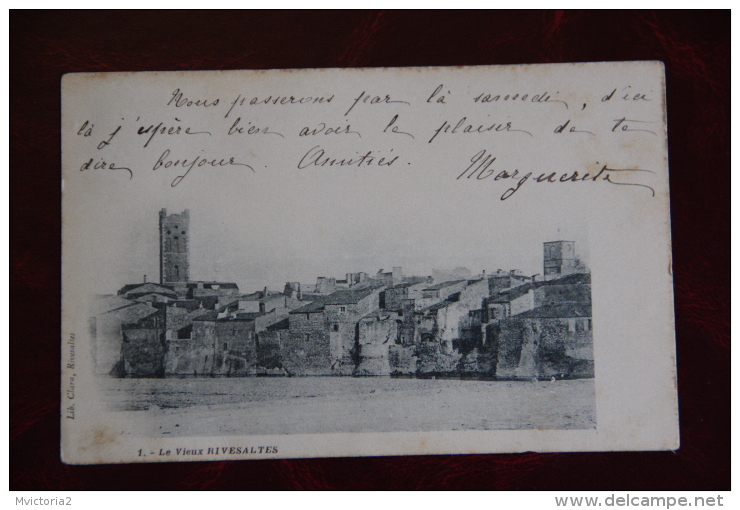 Nous passerons par là samedi, d'ici
là j'espère bien avoir le plaisir de te
dire bonjour. Amitiés. Marguerite
Lib. Clara, Rivesaltes
1. - Le Vieux RIVESALTES
Mvictoria2
https://www.delcampe.net